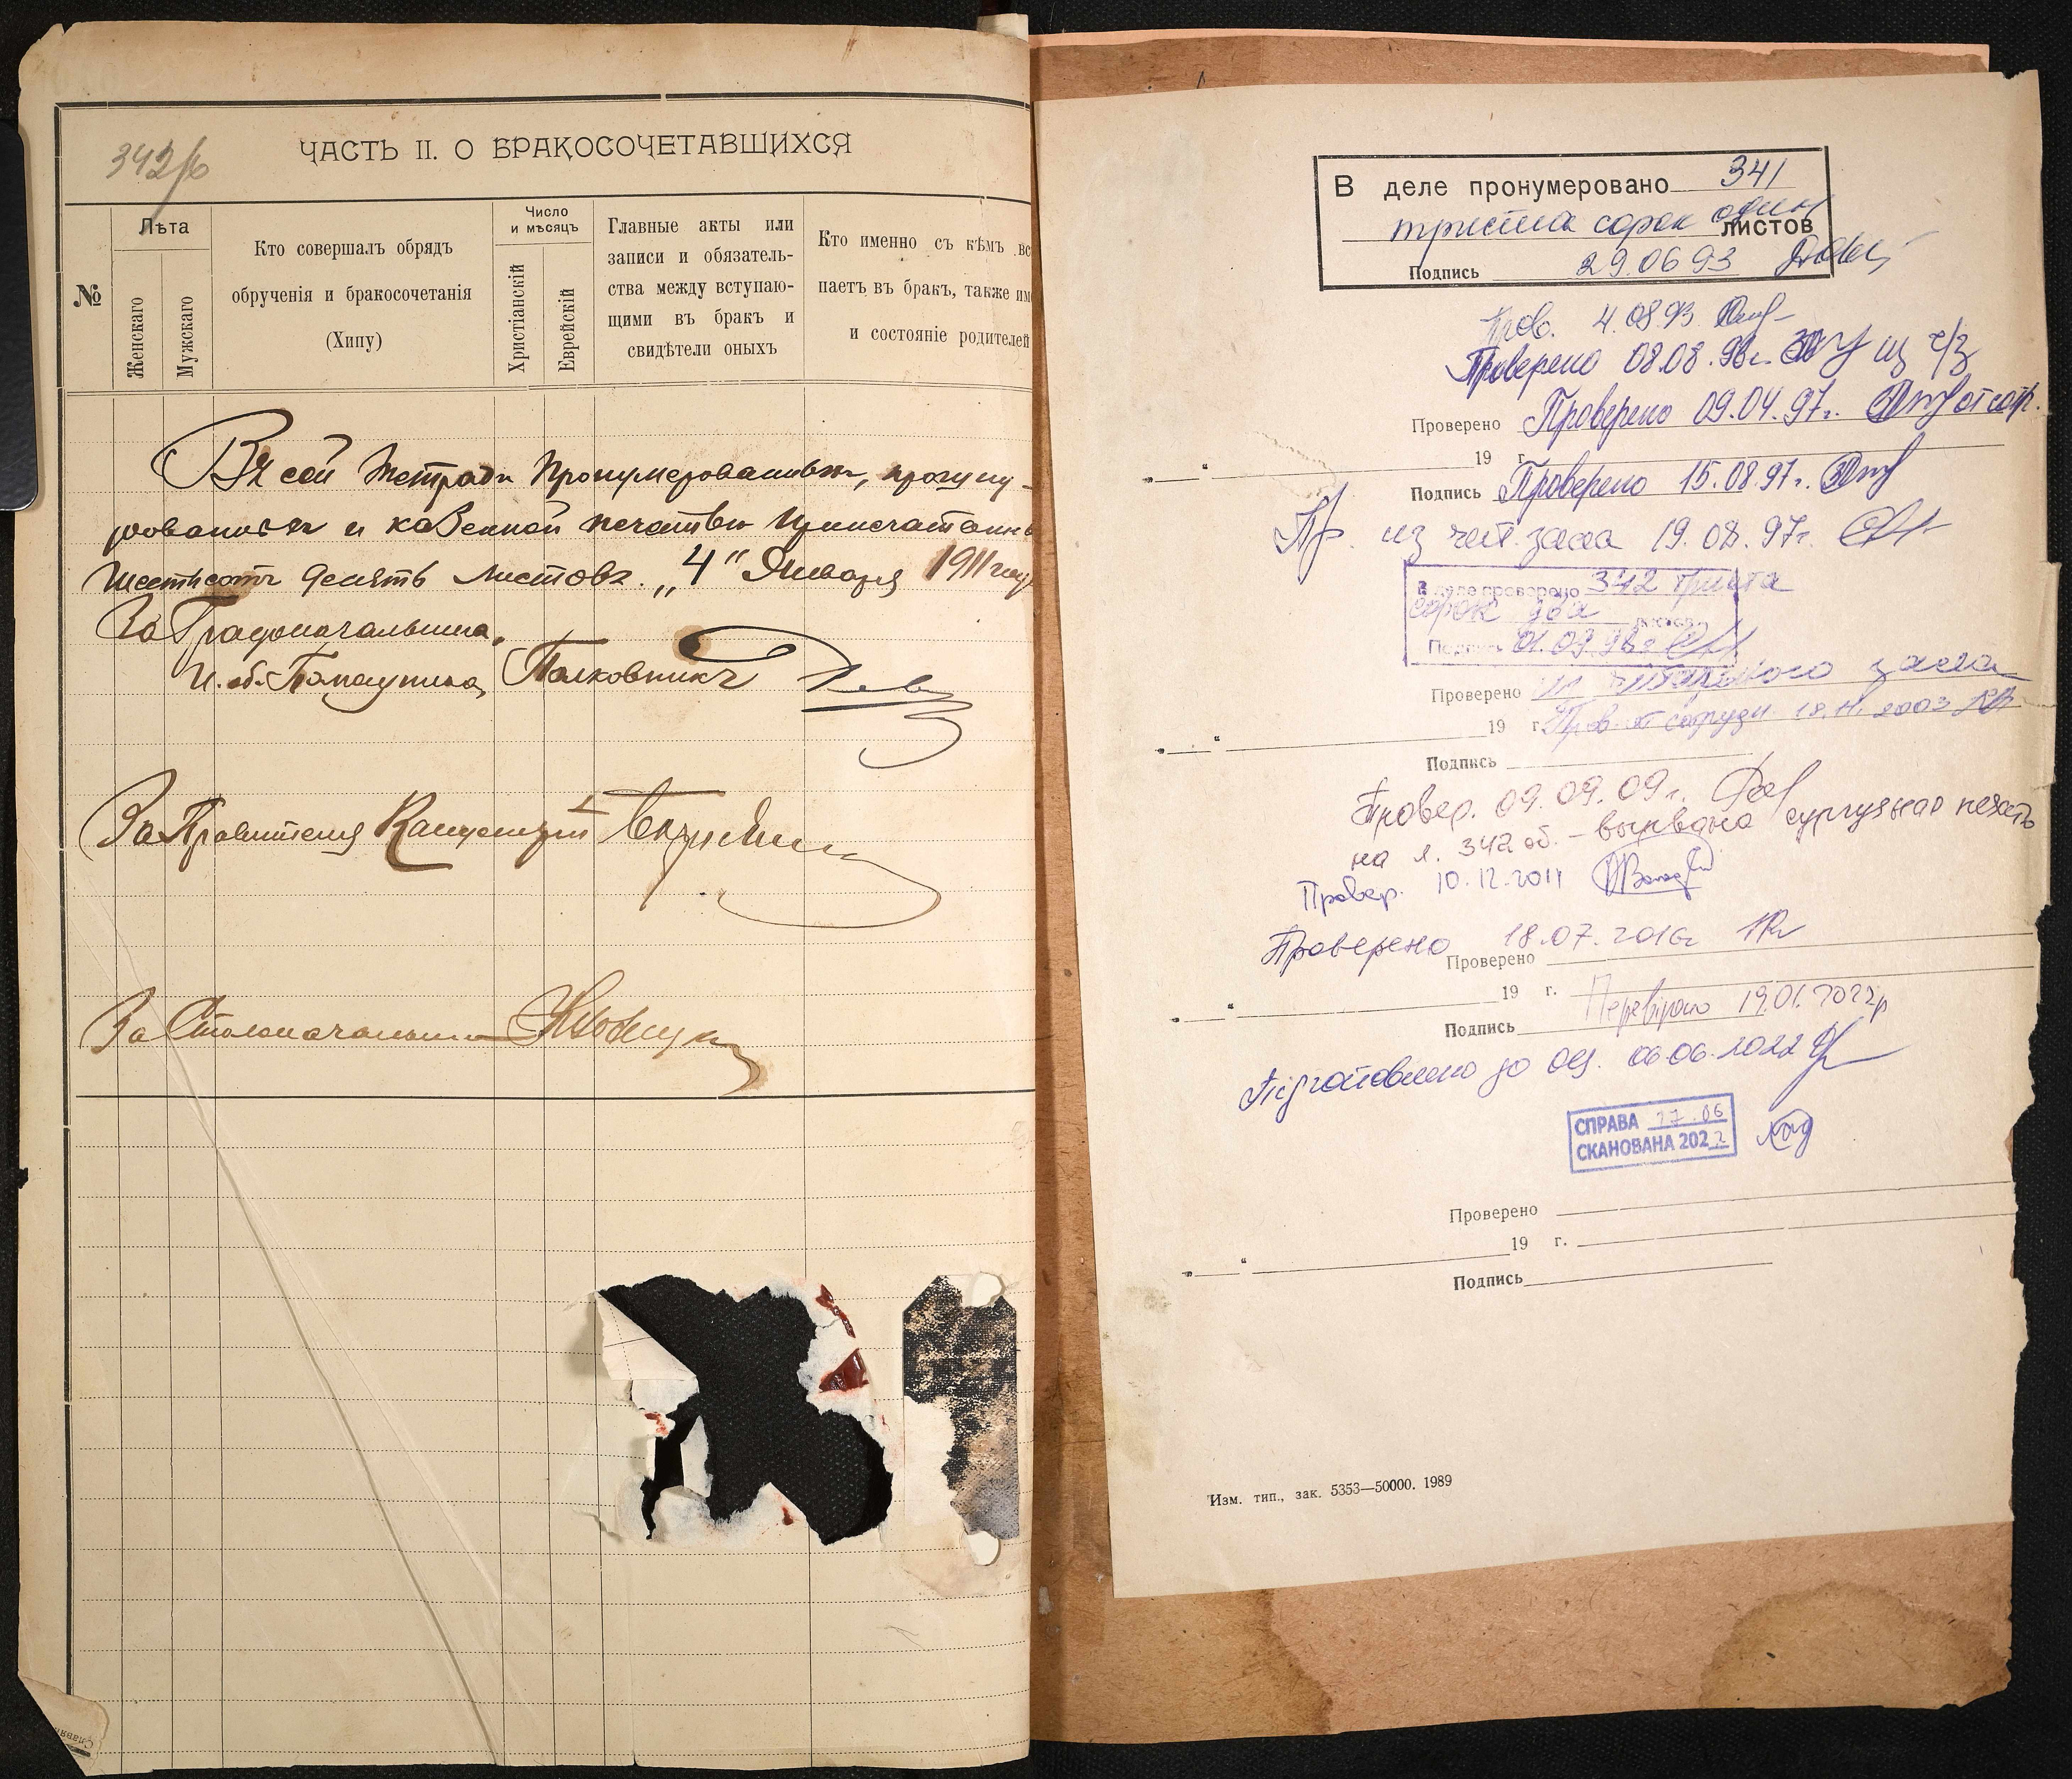 342об
ЧАСТЬ II. О БРАКОСОЧЕТАВШИХСЯ
№
Лѣта
Женскаго
Мужскаго
Кто совершалъ обрядъ
обрученія и бракосочетанія
(Хипу)
Число
и мѣсяцъ
Христіанскій
Еврейскій
Главные акты или
записи и обязатель-
ства между вступаю-
щими въ бракъ и
свидѣтели оныхъ
Кто именно съ кѣмъ вс
паетъ въ бракъ, также им
и состояніе родителей
Въ сей тетради пронумерованныхъ, прошну-
рованныхъ и казенной печатью припечатанны
шестьсотъ десять листовъ. „4" Января 1911 год
За Градоначальника,
И. об. Помощника, Полковникъ
За Правителя Канцеляріи
За Столоначальника
В деле пронумеровано 341
триста сорок один
листов
Подпись 29.06 93
Пров. 4.08.93
Проверено 08.08. из ч/з
Проверено Проверено 09.04.97г. от сотр.
„ “ 19 г.
Подпись Проверено 15.08.97г.
Пр. из чит. зала 19.08.97г.
В деле проверено 342 триста
сорок два листов
Подпись 01.09.98г
Проверено из читального зала
„ “ 19 г. Пров. от сотрудн. 18.11.2003
Подпись
Провер. 09.09.09г.
на л. 342 об. – вырвана сургузная печать
Провер. 10.12.2011
Проверено 18.07.2016г
Проверено
„ “ 19 г.
Перевірено 19.01.2022р
Подпись
Підготовлено до оц. 06.06.2022
СПРАВА 27.06
СКАНОВАНА 2022
Проверено
„ “ 19 г.
Подпись
Изм. тип., зак. 5353—50000. 1989